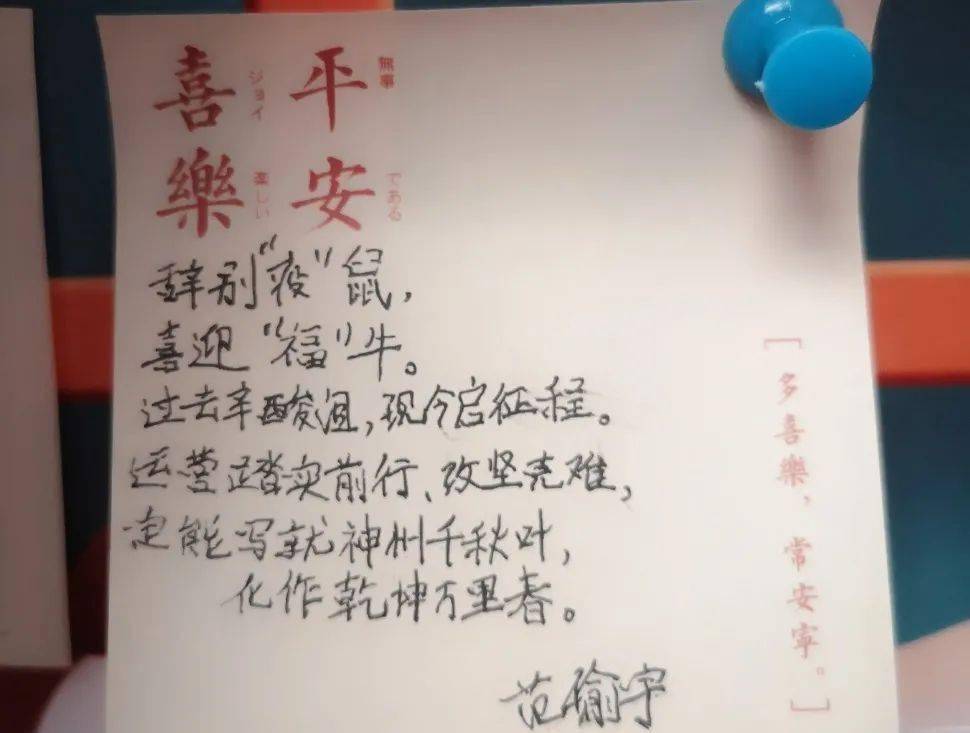 平安
喜樂
無事
である
ジョイ
楽しい
辞别“疫”鼠，
喜迎“福”牛。
过去辛酸泪，现今启征程。
运营踏实前行、改坚克难，
定能写就神州千秋叶，
化作乾坤万里春。
范瑜宇
［多喜樂，常安寧。］